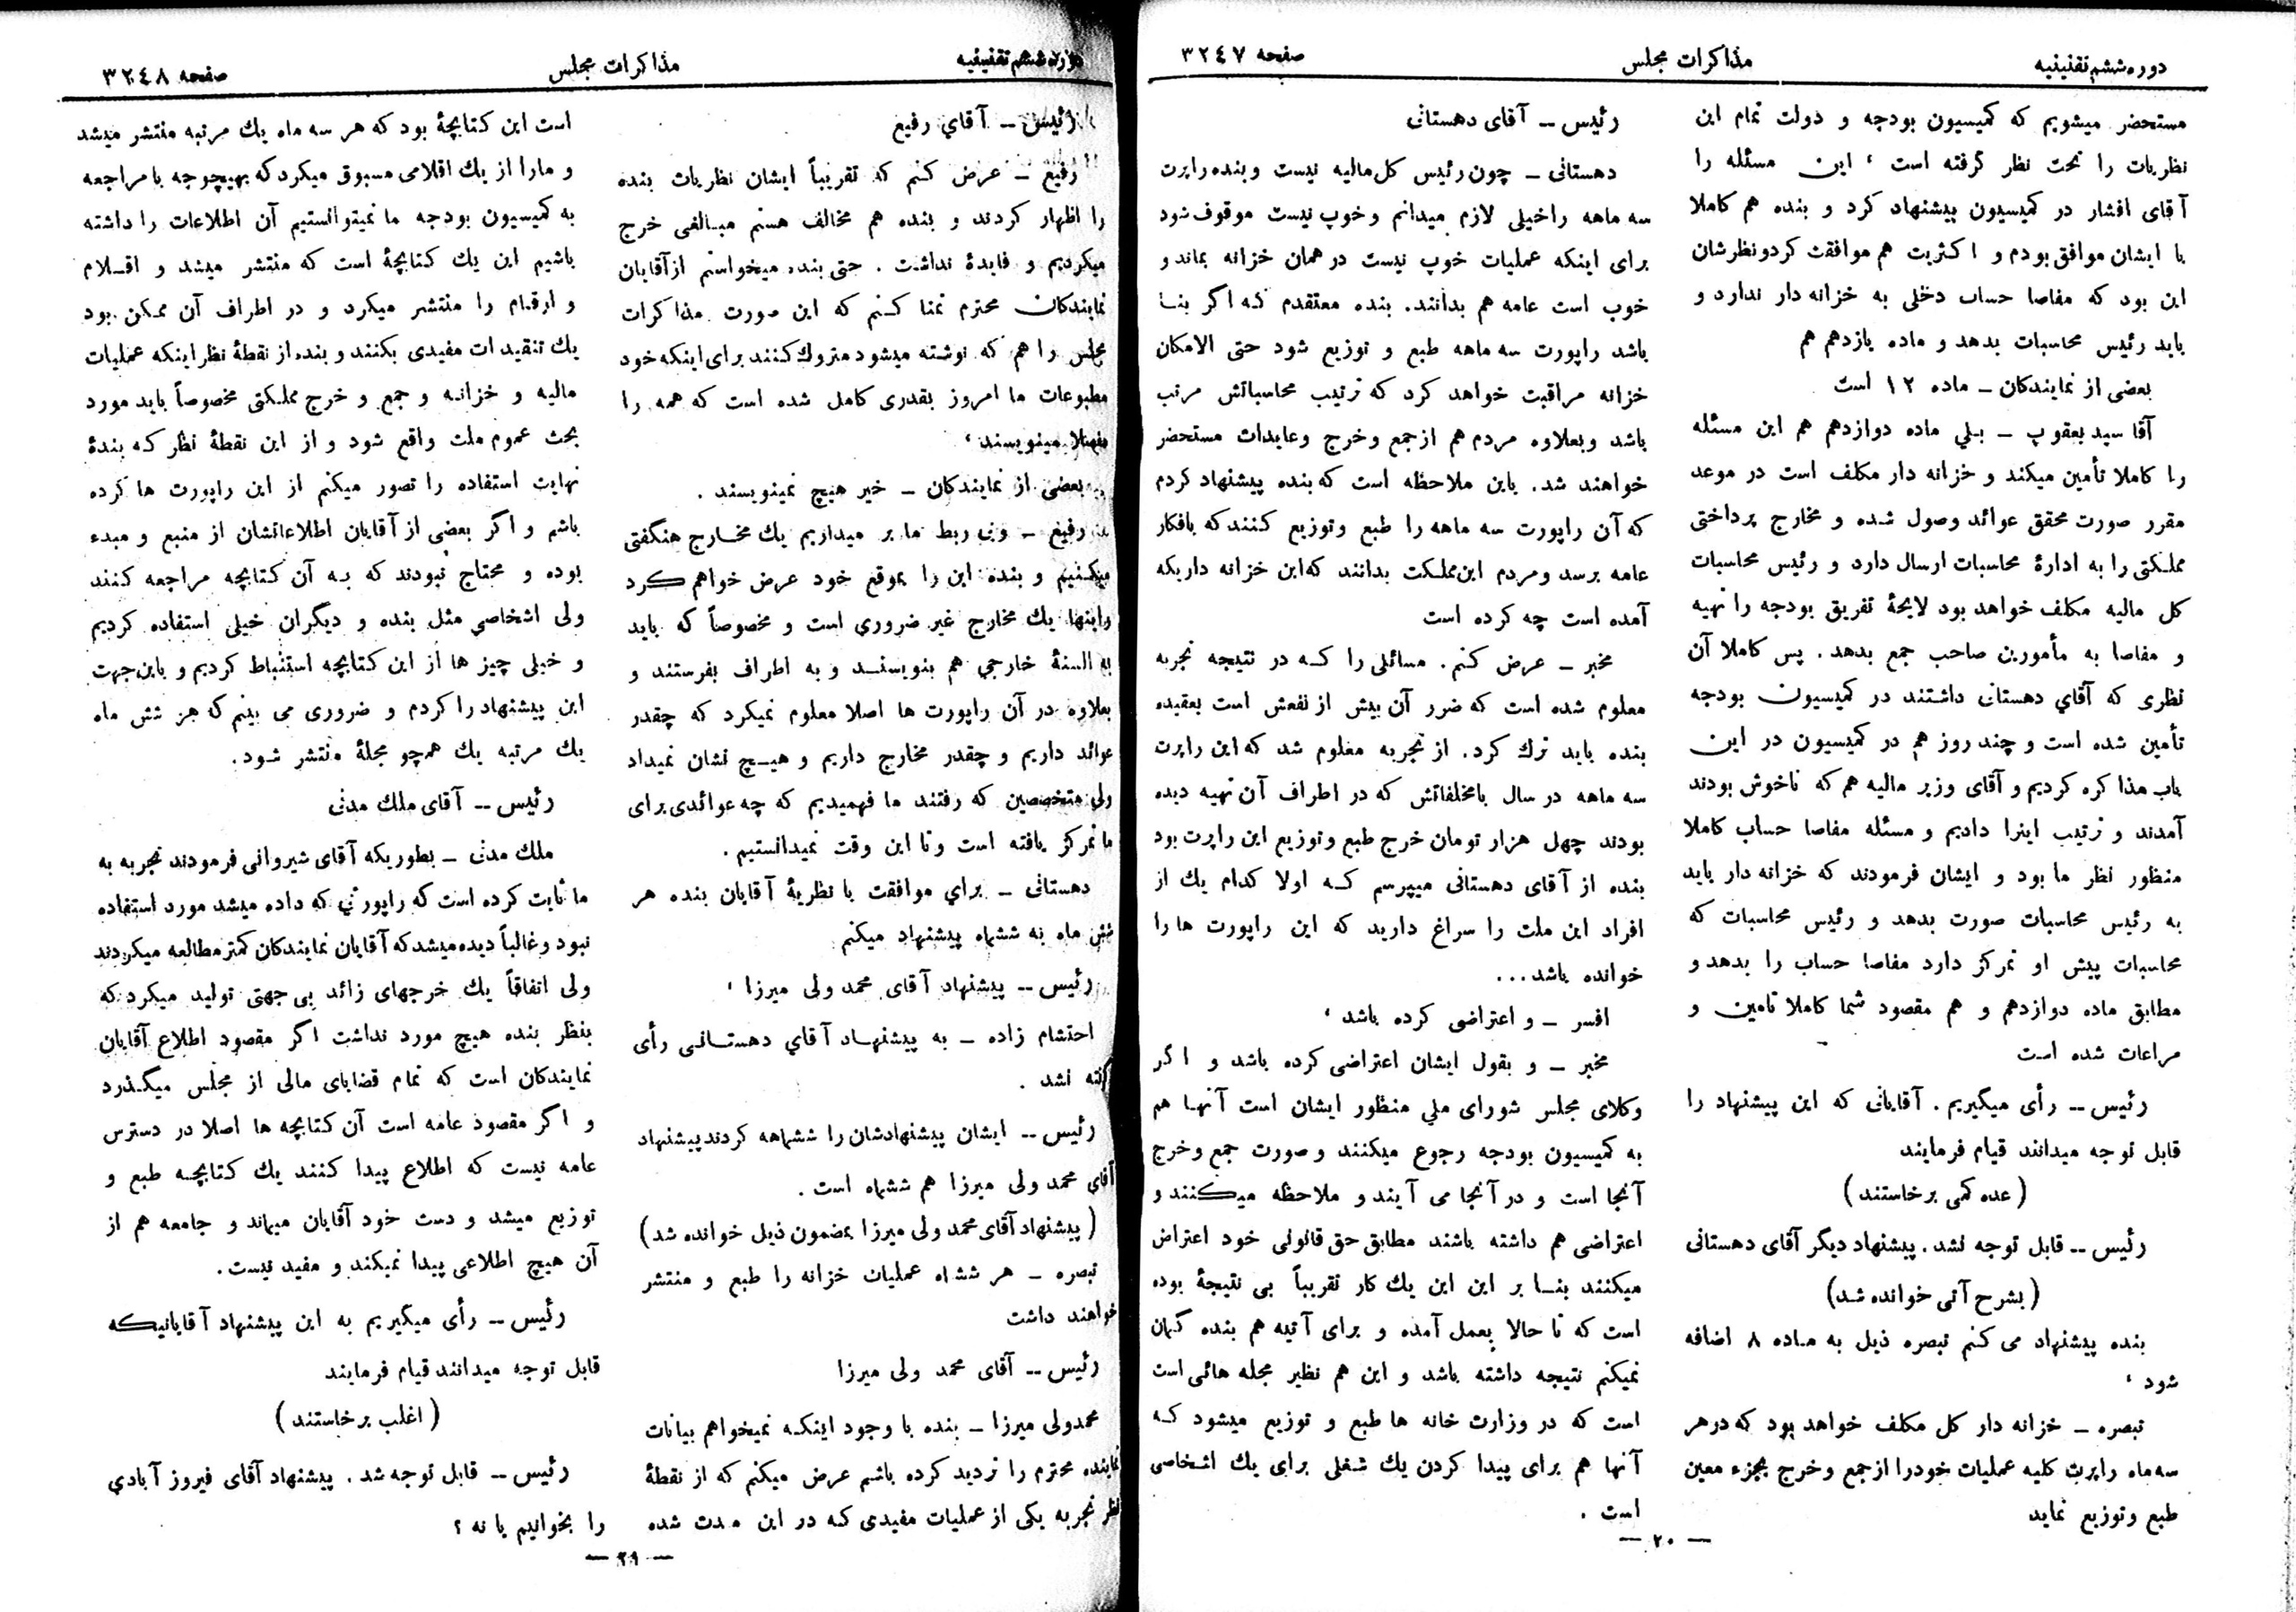 دوره ششم تقنینیه
مذاکرات مجلس
صفحه ۳۲۴۷
مستحضر میشویم که کمیسیون بودجه و دولت تمام این
نظریات را تحت نظر گرفته است ، این مسئله را
آقای افشار در کمیسیون پیشنهاد کرد و بنده هم کاملا
با ایشان موافق بودم و اکثریت هم موافقت کرد و نظرشان
این بود که مفاصا حساب دخلی به خزانه دار ندارد و
باید رئیس محاسبات بدهد و ماده یازدهم هم
بعضی از نمایندگان ـ ماده ۱۲ است
آقا سید یعقوب ـ بلي ماده دوازدهم هم این مسئله
را کاملا تأمین میکند و خزانه دار مکلف است در موعد
مقرر صورت محقق عوائد وصول شده و مخارج پرداختی
مملکتی را به ادارۀ محاسبات ارسال دارد و رئیس محاسبات
کل مالیه مکلف خواهد بود لایحۀ تفریق بودجه را تهیه
و مفاصا به مأمورین صاحب جمع بدهد . پس کاملا آن
نظری که آقاي دهستانی داشتند در کمیسیون بودجه
تأمین شده است و چند روز هم در کمیسیون در این
باب مذاکره کردیم و آقای وزیر مالیه هم که ناخوش بودند
آمدند و ترتیب اینرا دادیم و مسئله مفاصا حساب کاملا
منظور نظر ما بود و ایشان فرمودند که خزانه دار باید
به رئیس محاسبات صورت بدهد و رئیس محاسبات که
محاسبات پیش او تمرکز دارد مفاصا حساب را بدهد و
مطابق ماده دوازدهم و هم مقصود شما کاملا تامین و
مراعات شده است
رئیس ــ رأی میگیریم . آقایانی که این پیشنهاد را
قابل توجه میدانند قیام فرمایند
( عده کمی برخاستند )
رئیس ــ قابل توجه نشد . پیشنهاد دیگر آقای دهستانی
( بشرح آتی خوانده شد )
بنده پیشنهاد می کنم تبصره ذیل به ماده ۸ اضافه
شود ،
تبصره ـ خزانه دار کل مکلف خواهد بود که در هر
سه ماه راپرت کلیه عملیات خود را از جمع و خرج بجزء معین
طبع و توزیع نماید
رئیس ــ آقای دهستانی
دهستانی ـ چون رئیس کل مالیه نیست و بنده راپرت
سه ماهه را خیلی لازم میدانم و خوب نیست موقوف شود
برای اینکه عملیات خوب نیست در همان خزانه بماند و
خوب است عامه هم بدانند . بنده معتقدم که اگر بنا
باشد راپورت سه ماهه طبع و توزیع شود حتی الامکان
خزانه مراقبت خواهد کرد که ترتیب محاسباتش مرتب
باشد و بعلاوه مردم هم از جمع و خرج و عایدات مستحضر
خواهند شد . باین ملاحظه است که بنده پیشنهاد کردم
که آن راپورت سه ماهه را طبع و توزیع کنند که بافکار
عامه برسد و مردم این مملکت بدانند که این خزانه داریکه
آمده است چه کرده است
مخبر ـ عرض کنم . مسائلی را که در نتیجه تجربه
معلوم شده است که ضرر آن بیش از نفعش است بعقیده
بنده باید ترك کرد . از تجربه معلوم شد که این راپرت
سه ماهه در سال بامخلفاتش که در اطراف آن تهیه دیده
بودند چهل هزار تومان خرج طبع و توزیع این راپرت بود
بنده از آقای دهستانی میپرسم که اولا کدام یك از
افراد این ملت را سراغ دارید که این راپورت ها را
خوانده باشد ...
افسر ـ و اعتراضی کرده باشد ،
مخبر ـ و بقول ایشان اعتراضی کرده باشد و اگر
وکلای مجلس شورای ملي منظور ایشان است آنها هم
به کمیسیون بودجه رجوع میکنند و صورت جمع و خرج
آنجا است و در آنجا می آیند و ملاحظه میکنند و
اعتراضی هم داشته باشند مطابق حق قانونی خود اعتراض
میکنند بنا بر این این یك کار تقریباً بی نتیجۀ بوده
است که تا حالا بعمل آمده و برای آتیه هم بنده گمان
نمیکنم نتیجه داشته باشد و این هم نظیر مجله هائی است
است که در وزارت خانه ها طبع و توزیع میشود که
آنها هم برای پیدا کردن یك شغلی برای یك اشخاصی
است .
ــ ۲۰ ــ
دوره ششم تقنینیه
مذاکرات مجلس
صفحه ۳۲۴۸
رئیس ــ آقاي رفیع
رفیع ـ عرض کنم که تقریباً ایشان نظریات بنده
را اظهار کردند و بنده هم مخالف هستم مبالغی خرج
میکردیم و فایدۀ نداشت . حتی بنده میخواستم از آقایان
نمایندگان محترم تمنا کنم که این صورت مذاکرات
مجلس را هم که نوشته میشود متروك کنند برای اینکه خود
مطبوعات ما امروز بقدری کامل شده است که همه را
مفصلا مینویسند ،
بعضی از نمایندگان ـ خیر هیچ نمینویسند .
رفیع ـ وبی ربط ما بر میداریم یك مخارج هنگفتی
میکنیم و بنده این را بموقع خود عرض خواهم کرد
واینها یك مخارج غیر ضروری است و مخصوصاً که باید
به السنۀ خارجي هم بنویسند و به اطراف بفرستند و
بعلاوه در آن راپورت ها اصلا معلوم نمیکرد که چقدر
عوائد داریم و چقدر مخارج داریم و هیچ نشان نمیداد
ولی متخصصین که رفتند ما فهمیدیم که چه عوائدی برای
ما تمرکز یافته است و تا این وقت نمیدانستیم .
دهستانی ـ براي موافقت با نظریۀ آقایان بنده هر
شش ماه به ششماه پیشنهاد میکنم
رئیس ــ پیشنهاد آقای محمد ولی میرزا ،
احتشام زاده ـ به پیشنهاد آقاي دهستانی رأی
گرفته نشد .
رئیس ــ ایشان پیشنهادشان را ششماهه کردند پیشنهاد
آقاي محمد ولی میرزا هم ششماه است .
( پیشنهاد آقای محمد ولی میرزا بمضمون ذیل خوانده شد )
تبصره ـ هر ششماه عملیات خزانه را طبع و منتشر
خواهند داشت
رئیس ــ آقای محمد ولی میرزا
محمدولی میرزا ـ بنده با وجود اینکه نمیخواهم بیانات
نماینده محترم را تردید کرده باشم عرض میکنم که از نقطۀ
نظر تجربه یکی از عملیات مفیدی که در این مدت شده
است این کتابچۀ بود که هر سه ماه یك مرتبه منتشر میشد
و مارا از یك اقلامی مسبوق میکرد که بهیچوجه با مراجعه
به کمیسیون بودجه ما نمیتوانستیم آن اطلاعات را داشته
باشیم این یك کتابچۀ است که منتشر میشد و اقلام
و ارقام را منتشر میکرد و در اطراف آن ممکن بود
یك تنقیدات مفیدی بکنند و بنده از نقطۀ نظر اینکه عملیات
مالیه و خزانه و جمع و خرج مملکتی مخصوصاً باید مورد
بحث عموم ملت واقع شود و از این نقطۀ نظر که بندۀ
نهایت استفاده را تصور میکنم از این راپورت ها کرده
باشم و اگر بعضی از آقایان اطلاعاتشان از منبع و مبدء
بوده و محتاج نبودند که به آن کتابچه مراجعه کنند
ولی اشخاصي مثل بنده و دیگران خیلی استفاده کردیم
و خیلی چیز ها از این کتابچه استنباط کردیم و باین جهت
این پیشنهاد را کردم و ضروری می بینم که هر شش ماه
یك مرتبه یك همچو مجلۀ منتشر شود .
رئیس ــ آقای ملك مدنی
ملك مدنی ـ بطوریکه آقای شیروانی فرمودند تجربه به
ما ثابت کرده است که راپورتي که داده میشد مورد استفاده
نبود و غالباً دیده میشد که آقایان نمایندگان کمتر مطالعه میکردند
ولی اتفاقاً یك خرجهای زائد بی جهتی تولید میکرد که
بنظر بنده هیچ مورد نداشت اگر مقصود اطلاع آقایان
نمایندگان است که تمام قضایای مالی از مجلس میگذرد
و اگر مقصود عامه است آن کتابچه ها اصلا در دسترس
عامه نیست که اطلاع پیدا کنند یك کتابچه طبع و
توزیع میشد و دست خود آقایان میماند و جامعه هم از
آن هیچ اطلاعی پیدا نمیکند و مفید نیست .
رئیس ــ رأی میگیریم به این پیشنهاد آقایانیکه
قابل توجه میدانند قیام فرمایند
( اغلب برخاستند )
رئیس ــ قابل توجه شد . پیشنهاد آقای فیروز آبادي
را بخوانیم یا نه ؟
ــ ۲۱ ــ